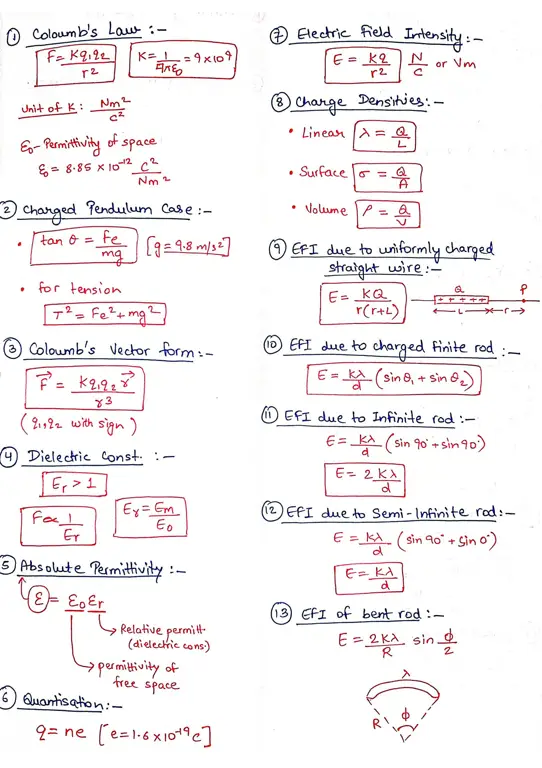 ① Coloumb's Law :-
F = Kq₁q₂/r²   K = 1/4πε₀ = 9×10⁹
Unit of K : Nm²/C²
ε₀ - Permittivity of space
ε₀ = 8.85 × 10⁻¹² C²/Nm²
② Charged Pendulum Case :-
• tan θ = Fe/mg [g = 9.8 m/s²]
• for tension
T² = Fe² + mg²
③ Coloumb's Vector form :-
F⃗ = Kq₁q₂ r⃗/r³
(q₁,q₂ with sign)
④ Dielectric Const. :-
Er > 1
F ∝ 1/Er   Er = Em/E₀
⑤ Absolute Permittivity :-
ε = ε₀ εr
Relative permitt.
(dielectric cons.)
permittivity of
free space
⑥ Quantisation :-
q = ne [e = 1.6 × 10⁻¹⁹ c]
⑦ Electric Field Intensity :-
E = kq/r² N/C or Vm
⑧ Charge Densitves :-
• Linear λ = Q/L
• Surface σ = Q/A
• Volume ρ = Q/V
⑨ EFI due to uniformly charged
straight wire :-
E = KQ/r(r+L)
Q P
+ + + + +
L r
⑩ EFI due to charged finite rod :-
E = kλ/d (sin θ₁ + sin θ₂)
⑪ EFI due to Infinite rod :-
E = kλ/d (sin 90° + sin 90°)
E = 2kλ/d
⑫ EFI due to Semi-Infinite rod :-
E = kλ/d (sin 90° + sin 0°)
E = kλ/d
⑬ EFI of bent rod :-
E = 2kλ/R sin ϕ/2
λ
R ϕ